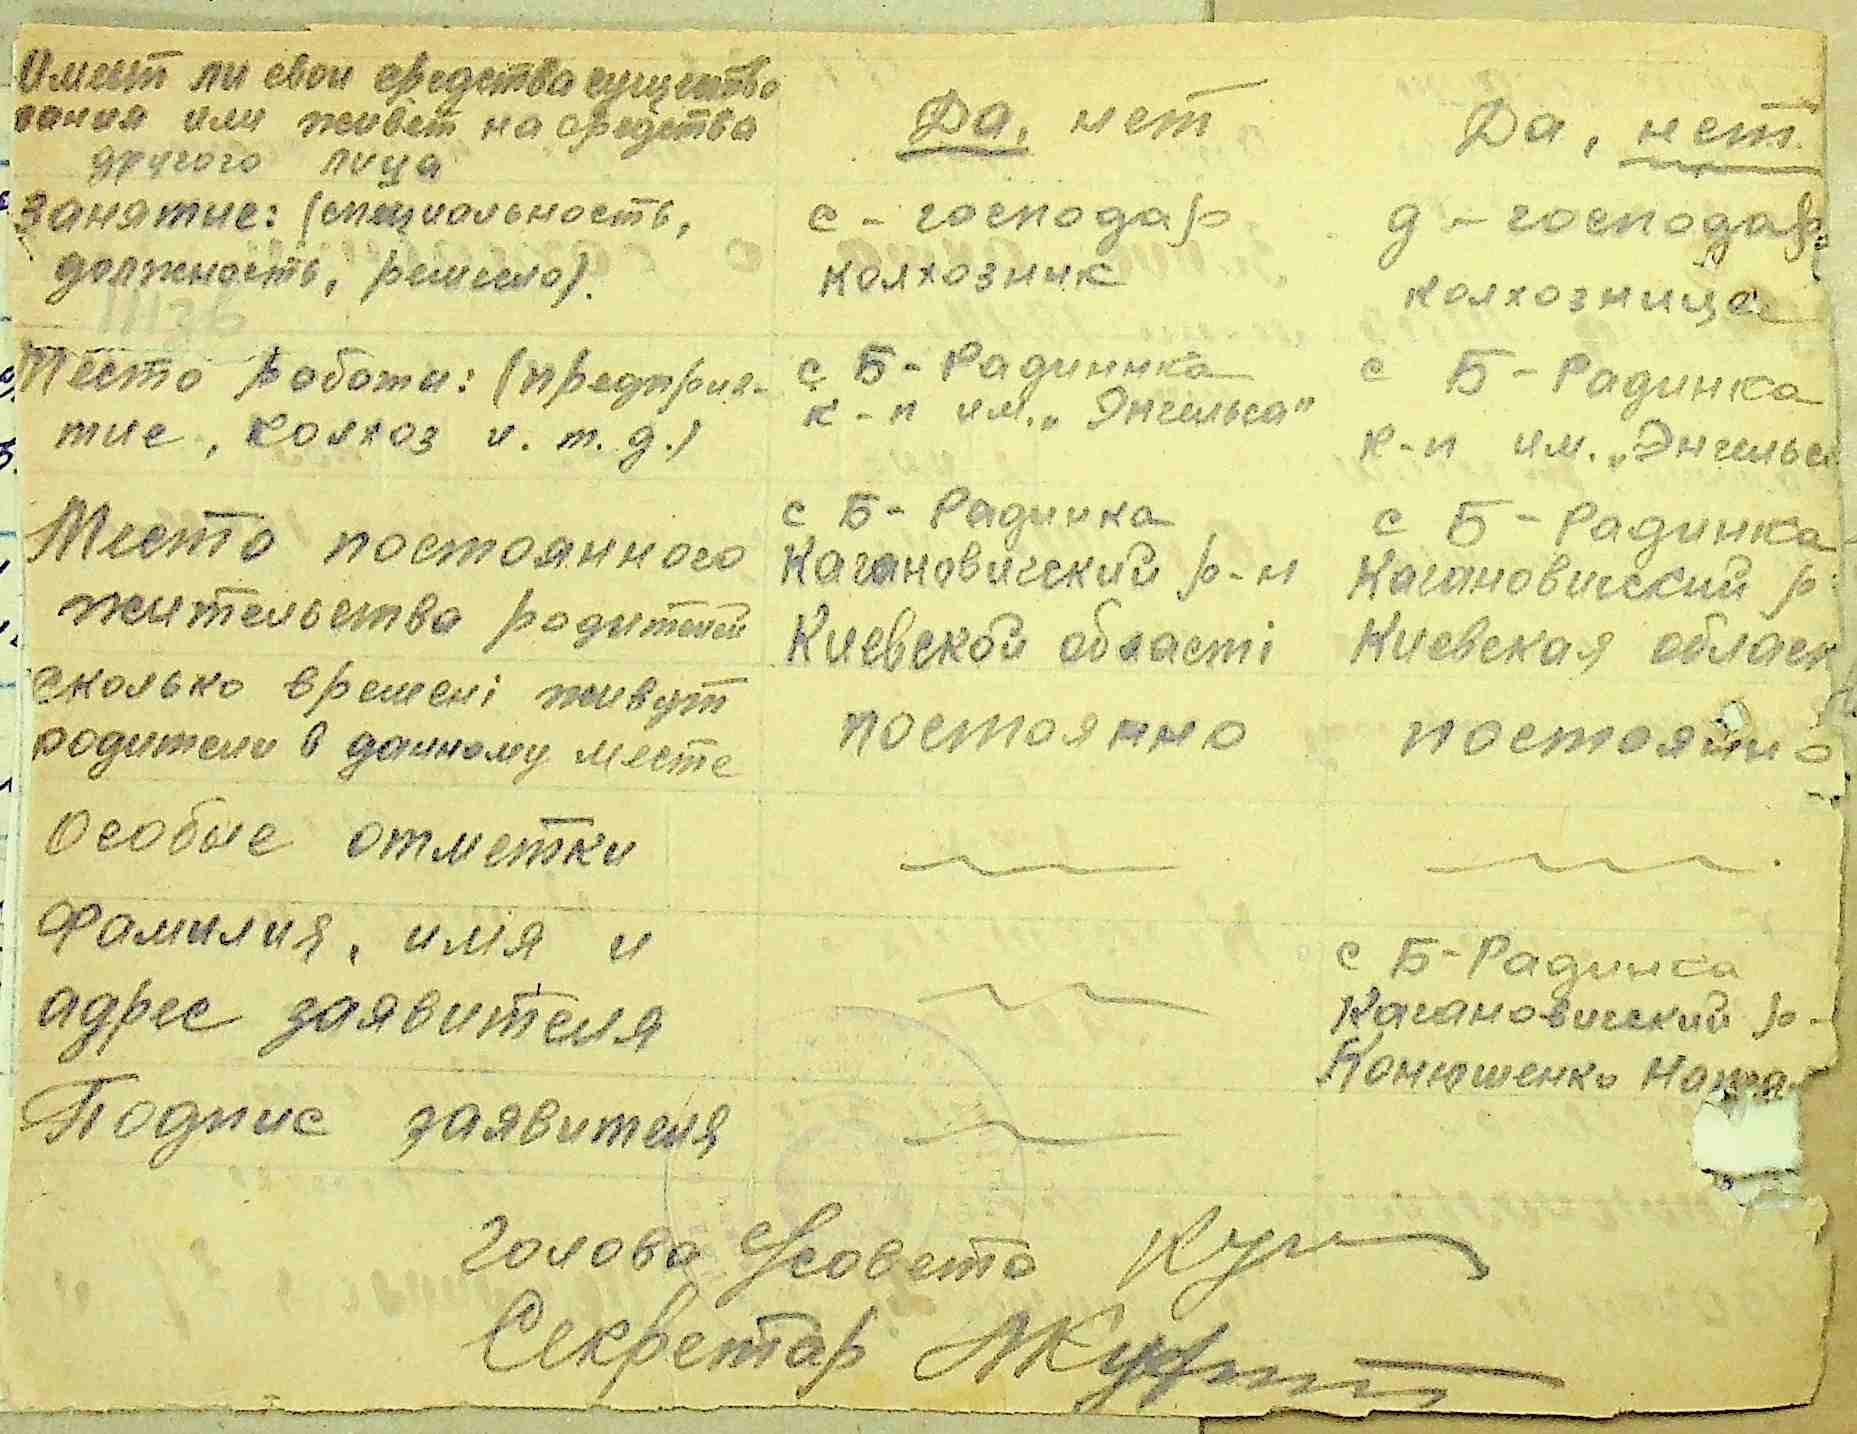 Имеет ли свои средства существо
вания или живет на средства
другого лица
Да, нет
Да, нет.
Занятие: (специальность,
должность, ремесло).
с - господар
колхозник
д - господар
колхозница
Место работи: (предприя-
тие, колхоз и. т. д.)
с Б - Радинка
к - п им. „Энгельса"
с Б - Радинка
к-п им. „Энгельса
Место постоянного
жительства родителей
с Б - Радинка
Кагановичский р-н
Киевской області
с Б - Радинка
Кагановичский р-
Киевская област
сколько времені живут
родители в данному месте
постоянно
постоянно
Особые отметки
Фамилия, имя и
адрес заявителя
с Б-Радинка
Кагановичский р-
Конюшенко
Подпис заявителя
Голова С/совета
Секретар